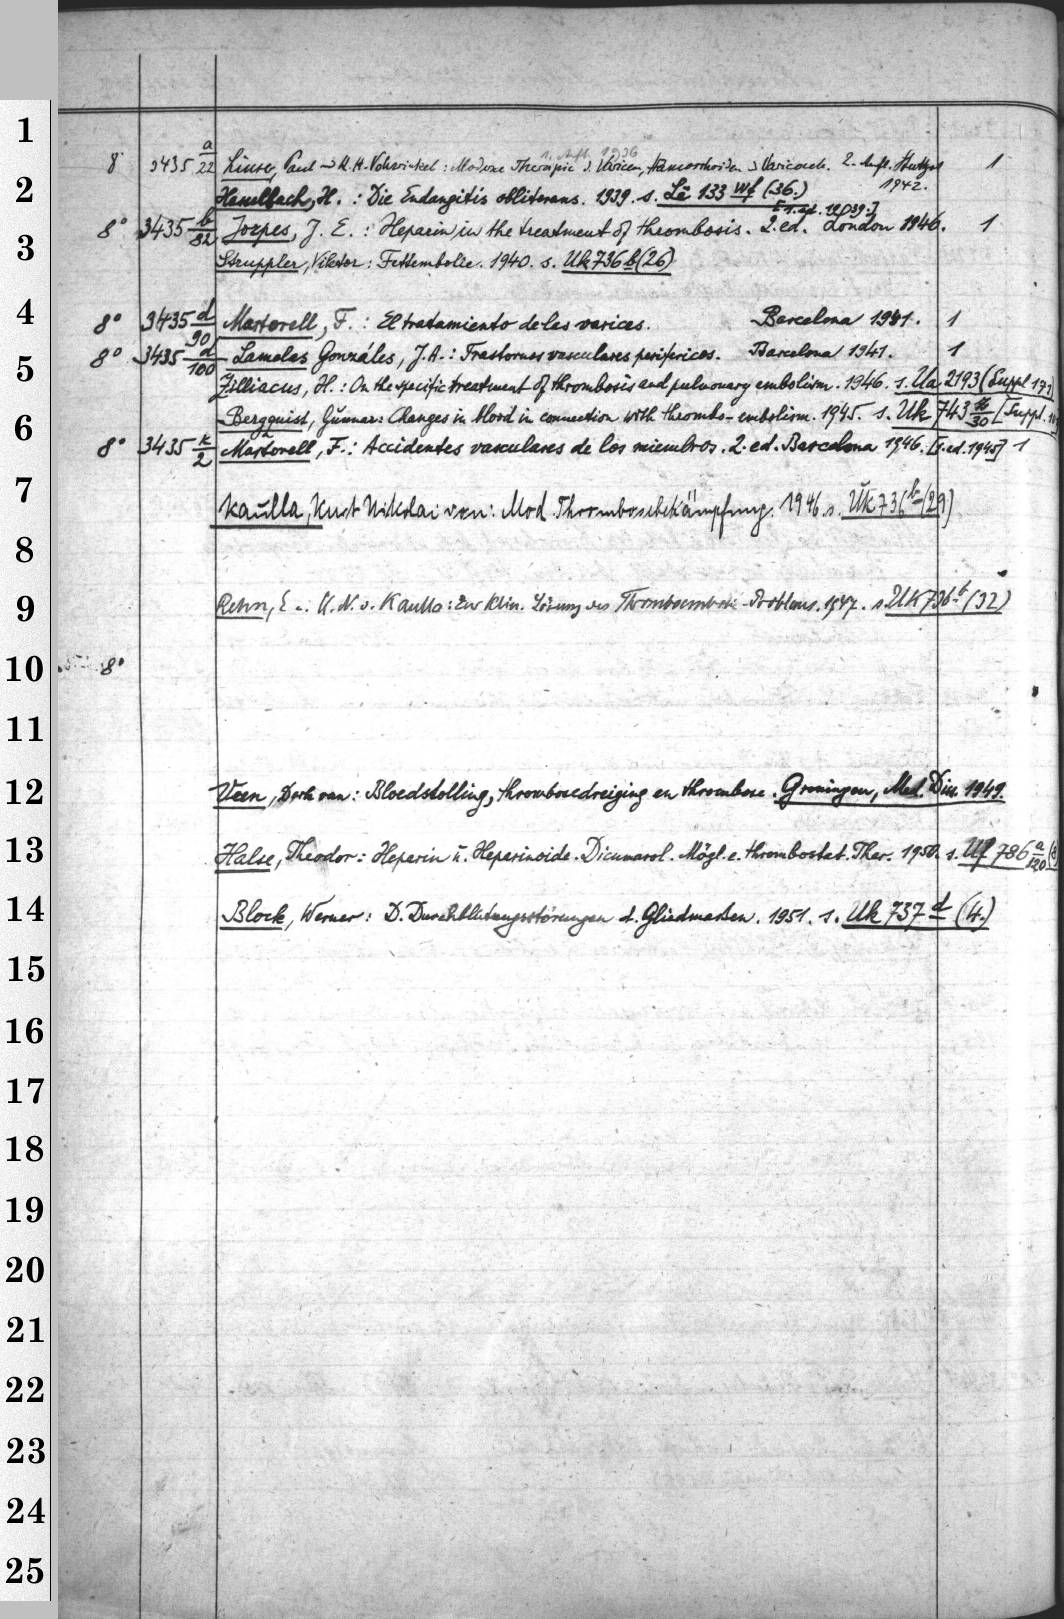 1
1. Aufl. 1936
8° 3435 a/22 Linser, Paul u. K. H. Vohwinkel: Moderne Therapie d. Varicen, Hämorrhoiden u. Varicocele. 2. Aufl. Stuttgart 1942. 1
2
Hasselbach, H. : Die Endangitis obliterans. 1939. s. Le 133 wf (36.)
[1. ed. 1939.]
8° 3435 b/82 Jorpes, J. E. : Heparin in the treatment of thrombosis. 2. ed. London 1946. 1
3
Struppler, Viktor: Fettembolie. 1940. s. Uk 736 b (26)
4
8° 3435 d/90 Martorell, F. : El tratamiento de las varices. Barcelona 1941. 1
8° 3435 d/100 Lamelas Gonzáles, J. A. : Trastornos vasculares perifericos. Barcelona 1941. 1
5
Zilliacus, H. : On the specific treatment of thrombosis and pulmonary embolism. 1946. s. Ua 2193 (Suppl 171)
Bergquist, Gunnar: Changes in blood in connection with thrombo-embolism. 1945. s. Uk 743 /30 [Suppl.
6
8° 3435 k/2 Martorell, F. : Accidentes vasculares de los miembros. 2. ed. Barcelona 1946. [1. ed. 1945] 1
7
Kaulla, Kurt Nikolai von: Mod. Thrombosebekämpfung. 1946. s. Uk 736 b (29)
8
9
Rehn, E. u. K. N. v. Kaulla: Zur klin. Lösung des Thromboembolie-Problems. 1947. s. Uk 736 b (32)
10
8°
11
12
Veen, Dirk van: Bloedstolling, thrombosedreiging en thrombose. Groningen, Med. Diss. 1949.
13
Halse, Theodor: Heparin u. Heparinoide. Dicumarol. Mögl. e. thrombostat. Ther. 1950. s. Uf 786 a/120
14
Block, Werner: D. Durchblutungsstörungen d. Gliedmaßen. 1951. s. Uk 737 d (4.)
15
16
17
18
19
20
21
22
23
24
25